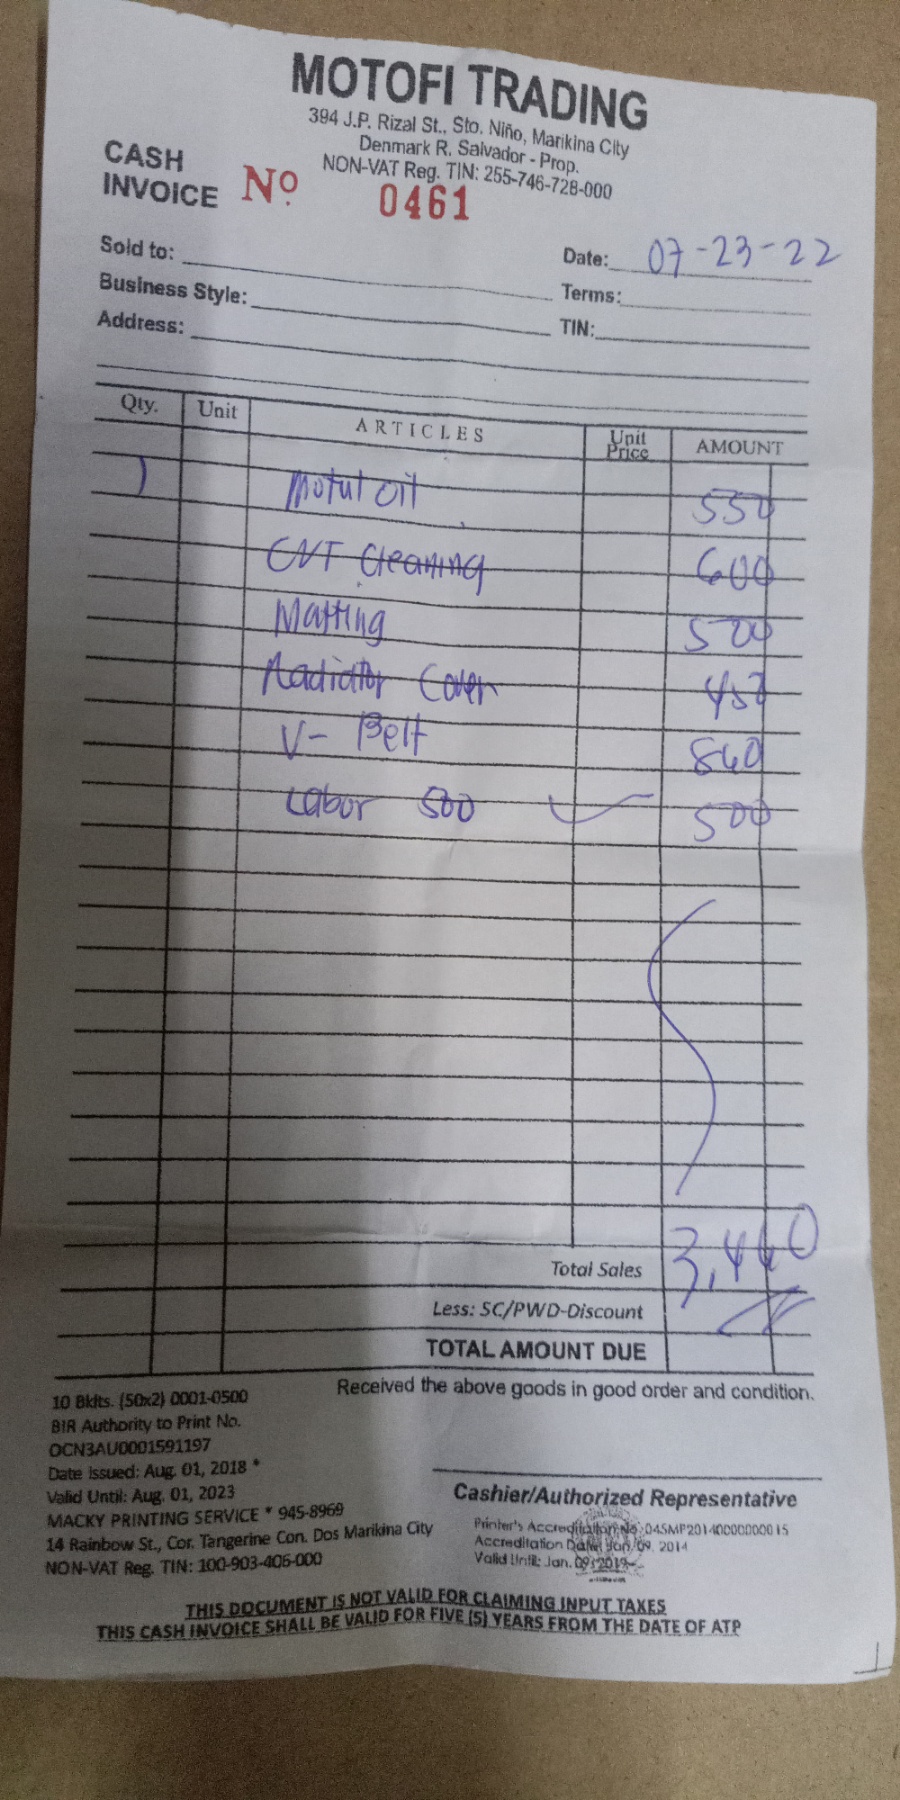 MOTOFI TRADING
394 J.P. Rizal St., Sto. Niño, Marikina City
Denmark R. Salvador - Prop.
NON-VAT Reg. TIN: 255-746-728-000
CASH
INVOICE Nº 0461
Sold to: Date: 07-23-22
Business Style: Terms:
Address: TIN:
Qty. Unit ARTICLES Unit Price AMOUNT
1 Motul oil 550
CVT Cleaning 600
Matting 500
Radiator Cover 450
V- Belt 860
Labor 500 500
Total Sales 3,460
Less: SC/PWD-Discount
TOTAL AMOUNT DUE
Received the above goods in good order and condition.
10 Bklts. (50x2) 0001-0500
BIR Authority to Print No.
OCN3AU0001591197
Date Issued: Aug. 01, 2018 *
Valid Until: Aug. 01, 2023
MACKY PRINTING SERVICE * 945-8969
14 Rainbow St., Cor. Tangerine Con. Dos Marikina City
NON-VAT Reg. TIN: 100-903-406-000
Cashier/Authorized Representative
Printer's Accreditation No. 045MP20140000000015
Accreditation Date: Jan. 09, 2014
Valid Until: Jan. 09, 2019
THIS DOCUMENT IS NOT VALID FOR CLAIMING INPUT TAXES
THIS CASH INVOICE SHALL BE VALID FOR FIVE (5) YEARS FROM THE DATE OF ATP